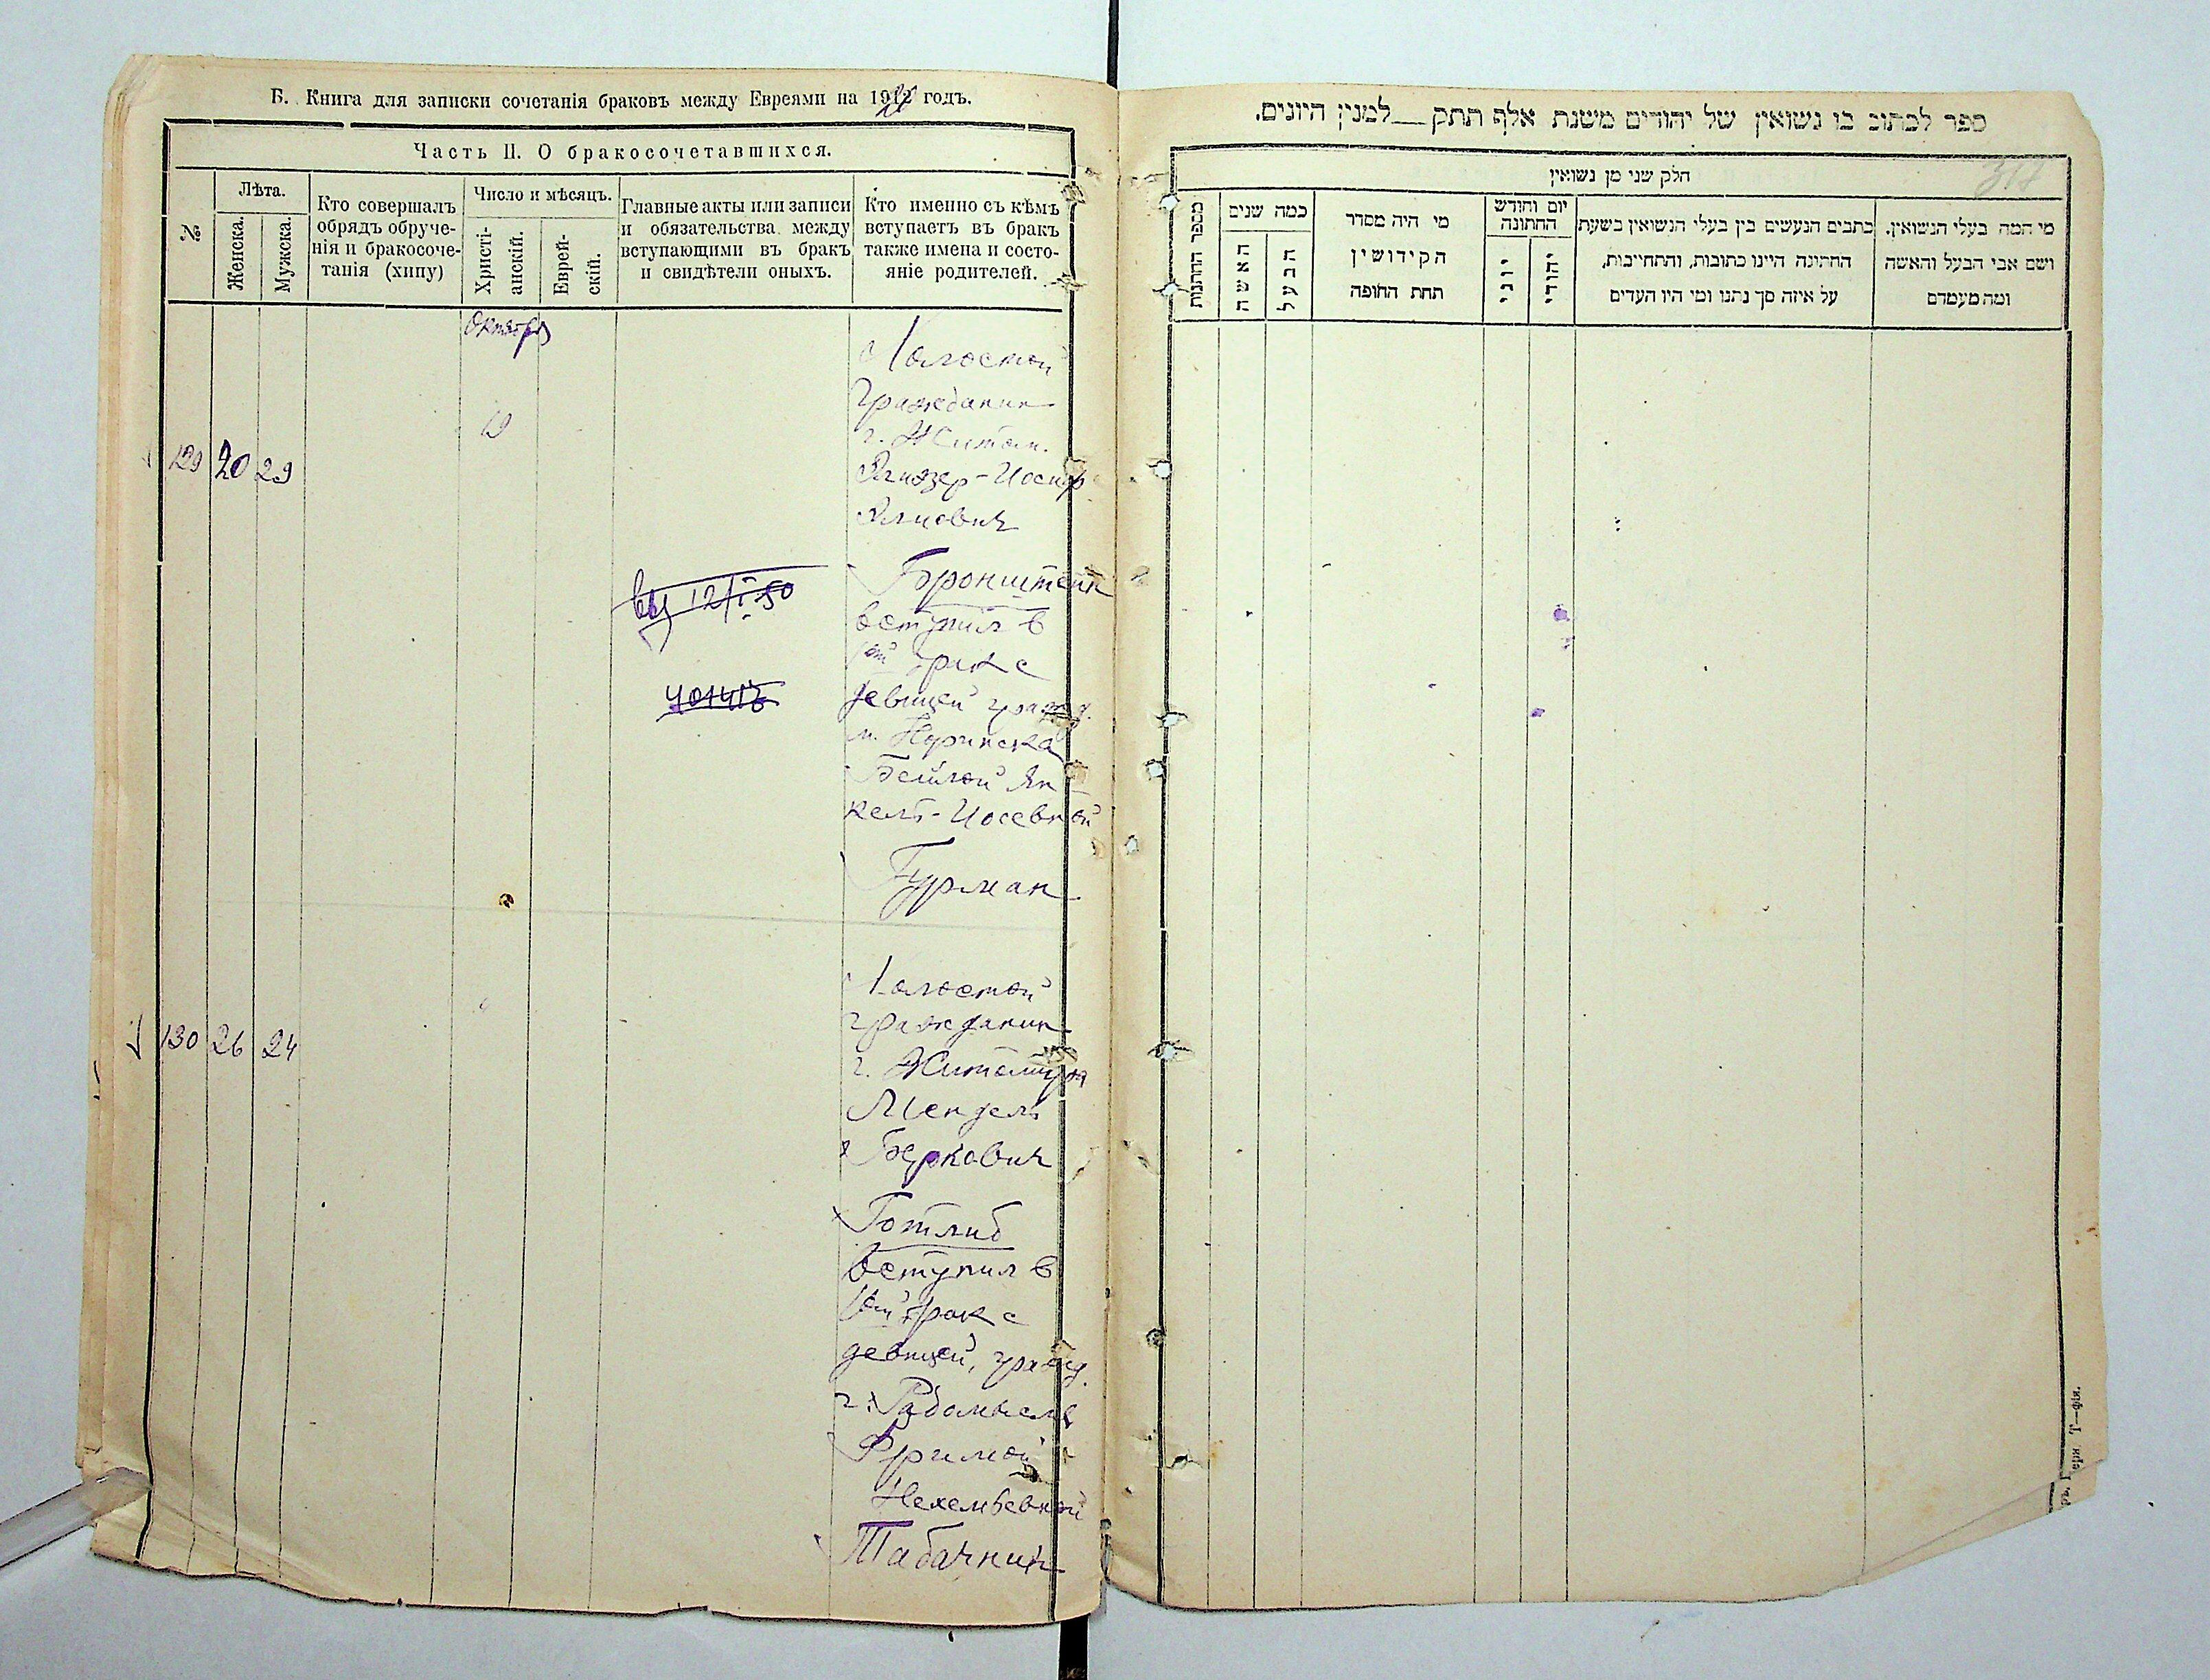 Б. Книга для записки сочетанія браковъ между Евреями на 19 годъ.
Часть II. О бракосочетавшихся.
№
Лѣта.
Женска.
Мужска.
Кто совершалъ
обрядъ обруче-
нія и бракосоче-
танія (хипу)
Число и мѣсяцъ.
Христі-
анскій.
Еврей-
скій.
Главные акты или записи
и обязательства между
вступающими въ бракъ
и свидѣтели оныхъ.
Кто именно съ кѣмъ
вступаетъ въ бракъ
также имена и состо-
яніе родителей.
Октября
129 20 29
19
Холостой
Гражданин
г. Житом.
Элиэзер-Иосиф
Элиевич
Бронштейн
вступил в
1ый брак с
девицей гражд.
м. Норинска
Бейлой Ян
кель-Иосевной
Гурман
выд 12/I 50
130 26 24
Холостой
гражданин
г. Житомира
Мендель
Беркович
Готлиб
вступил в
1ый брак с
девицей, гражд.
г. Радомысль
Фримой
Нехемьевной
Табачник
ספר לכתוב בו נשואין של יהודים משנת אלף תתק__למנין היונים.
317
חלק שני מן נשואין
מספר החתונות
כמה שנים
האשה
הבעל
מי היה מסדר
הקידושין
תחת החופה
יום וחודש
החתונה
יוני
יהודי
כתבים הנעשים בין בעלי הנשואין בשעת
החתונה היינו כתובות, והתחייבות,
על איזה סך נתנו ומי היו העדים
מי המה בעלי הנשואין.
ושם אבי הבעל והאשה
ומה מעמדם